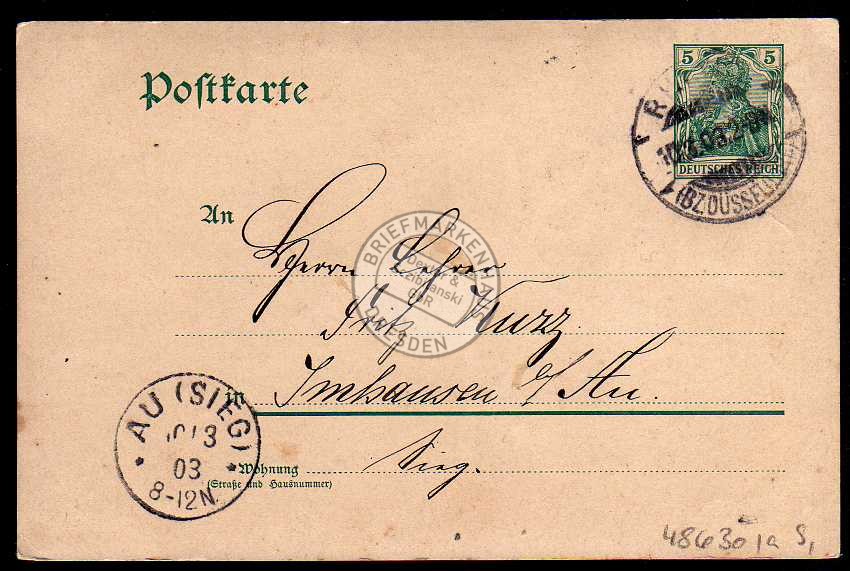 Postkarte
5 5
DEUTSCHES REICH
10.3.03.2-3
(BZ DÜSSELD
An
Herrn Lehrer
Fritz Kurz
in Imhausen b/ Au.
Sieg.
Wohnung
(Straße und Hausnummer)
AU (SIEG)
10/3
03
8-12N.
BRIEFMARKENHAUS
DRESDEN
48630 1a S,